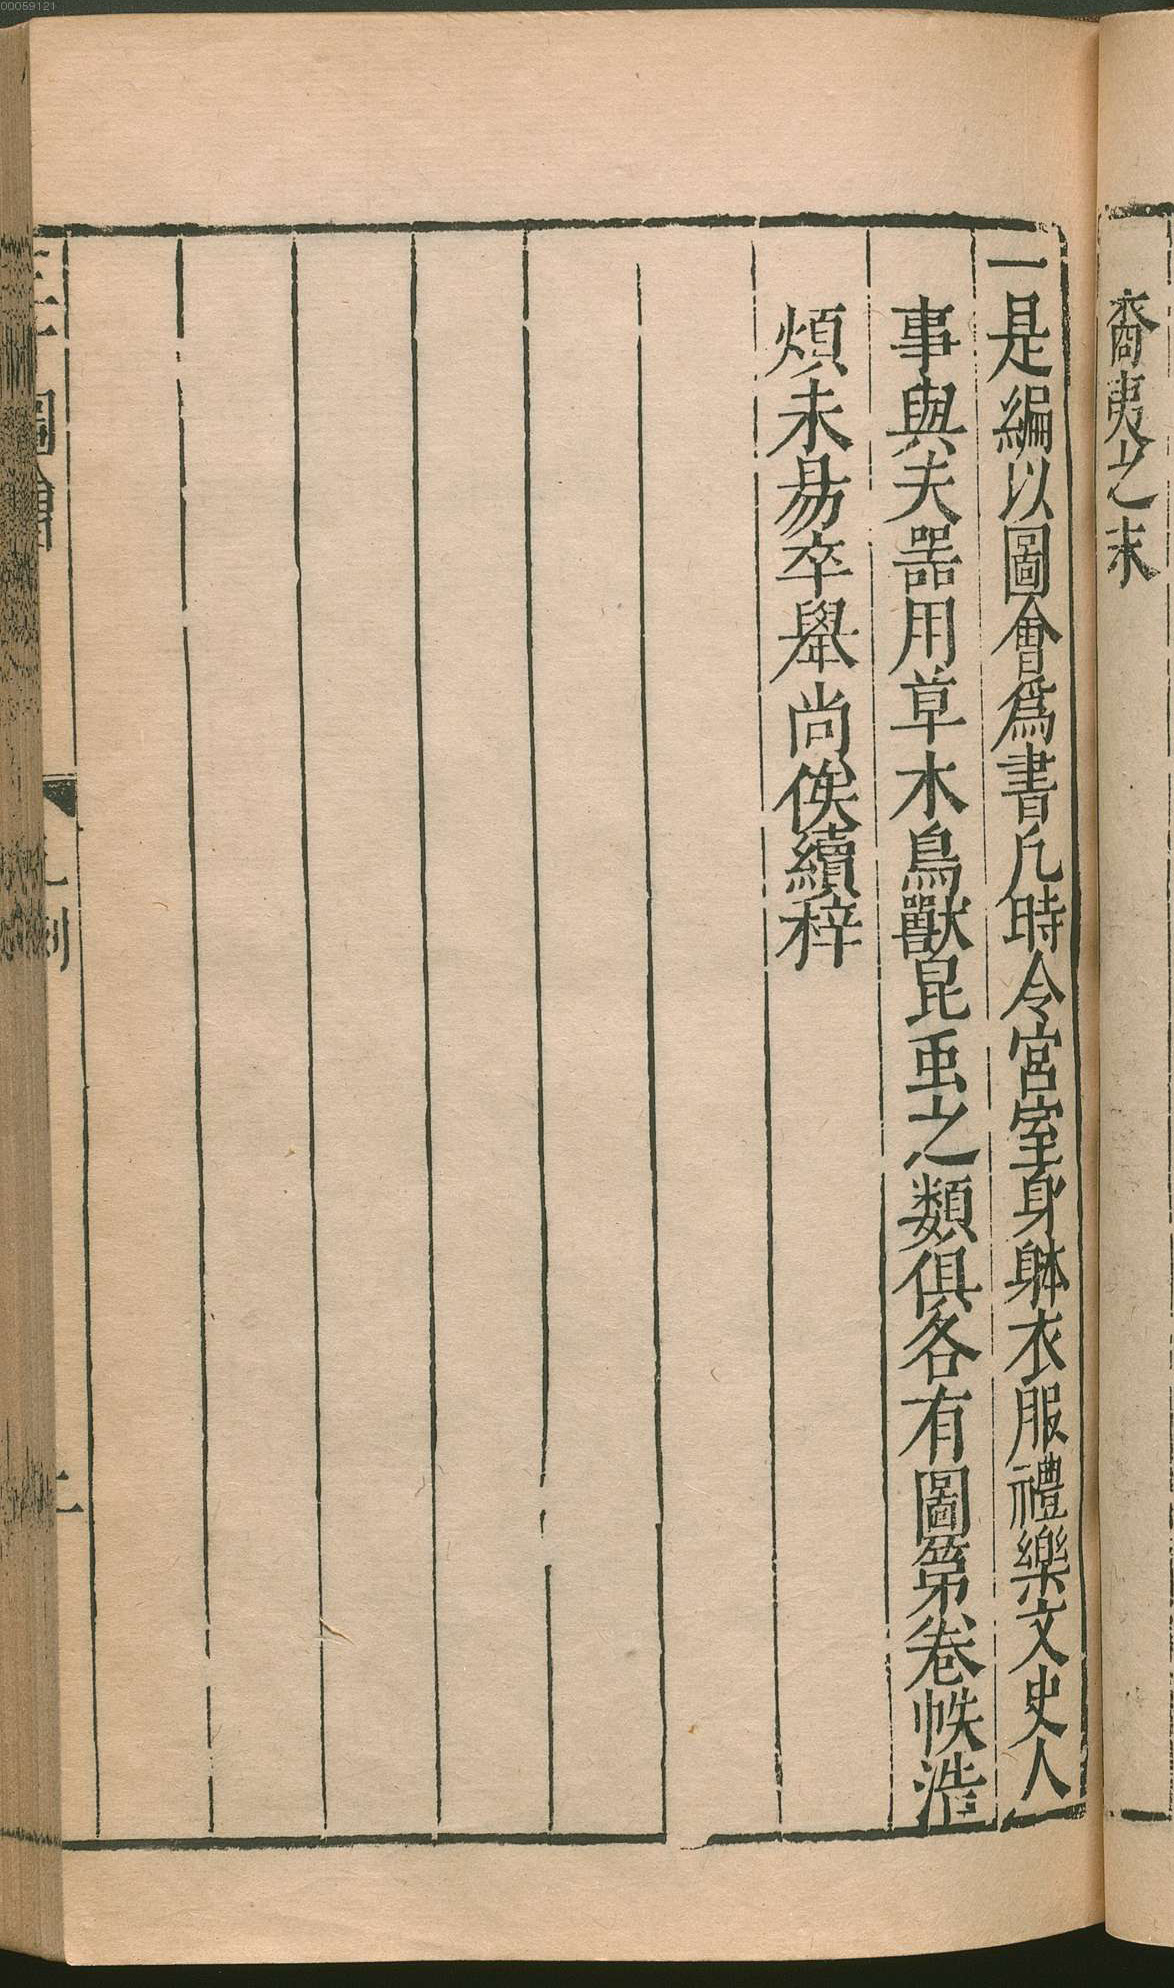 00059121
裔夷之末
一是編以圖會爲書凢時令宮室身躰衣服禮樂文史人
事與夫噐用草木鳥獸昆䖝之類俱各有圖第卷帙浩
煩未昜卒舉尚俟續梓